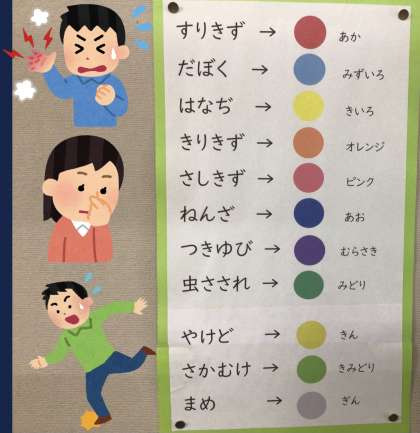 すりきず → あか
だぼく → みずいろ
はなぢ → きいろ
きりきず → オレンジ
さしきず → ピンク
ねんざ → あお
つきゆび → むらさき
虫さされ → みどり
やけど → きん
さかむけ → きみどり
まめ → ぎん